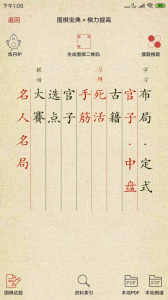 下午1:06
返回
围棋宝典 • 棋力提高
炼丹炉
生成围棋二维码
学习
布局·定式
官子·中盘
古籍
习题
死活
手筋
官子
选点
大赛
名人名局
围棋试题
资料索引
PDF
本地PDF
PDF